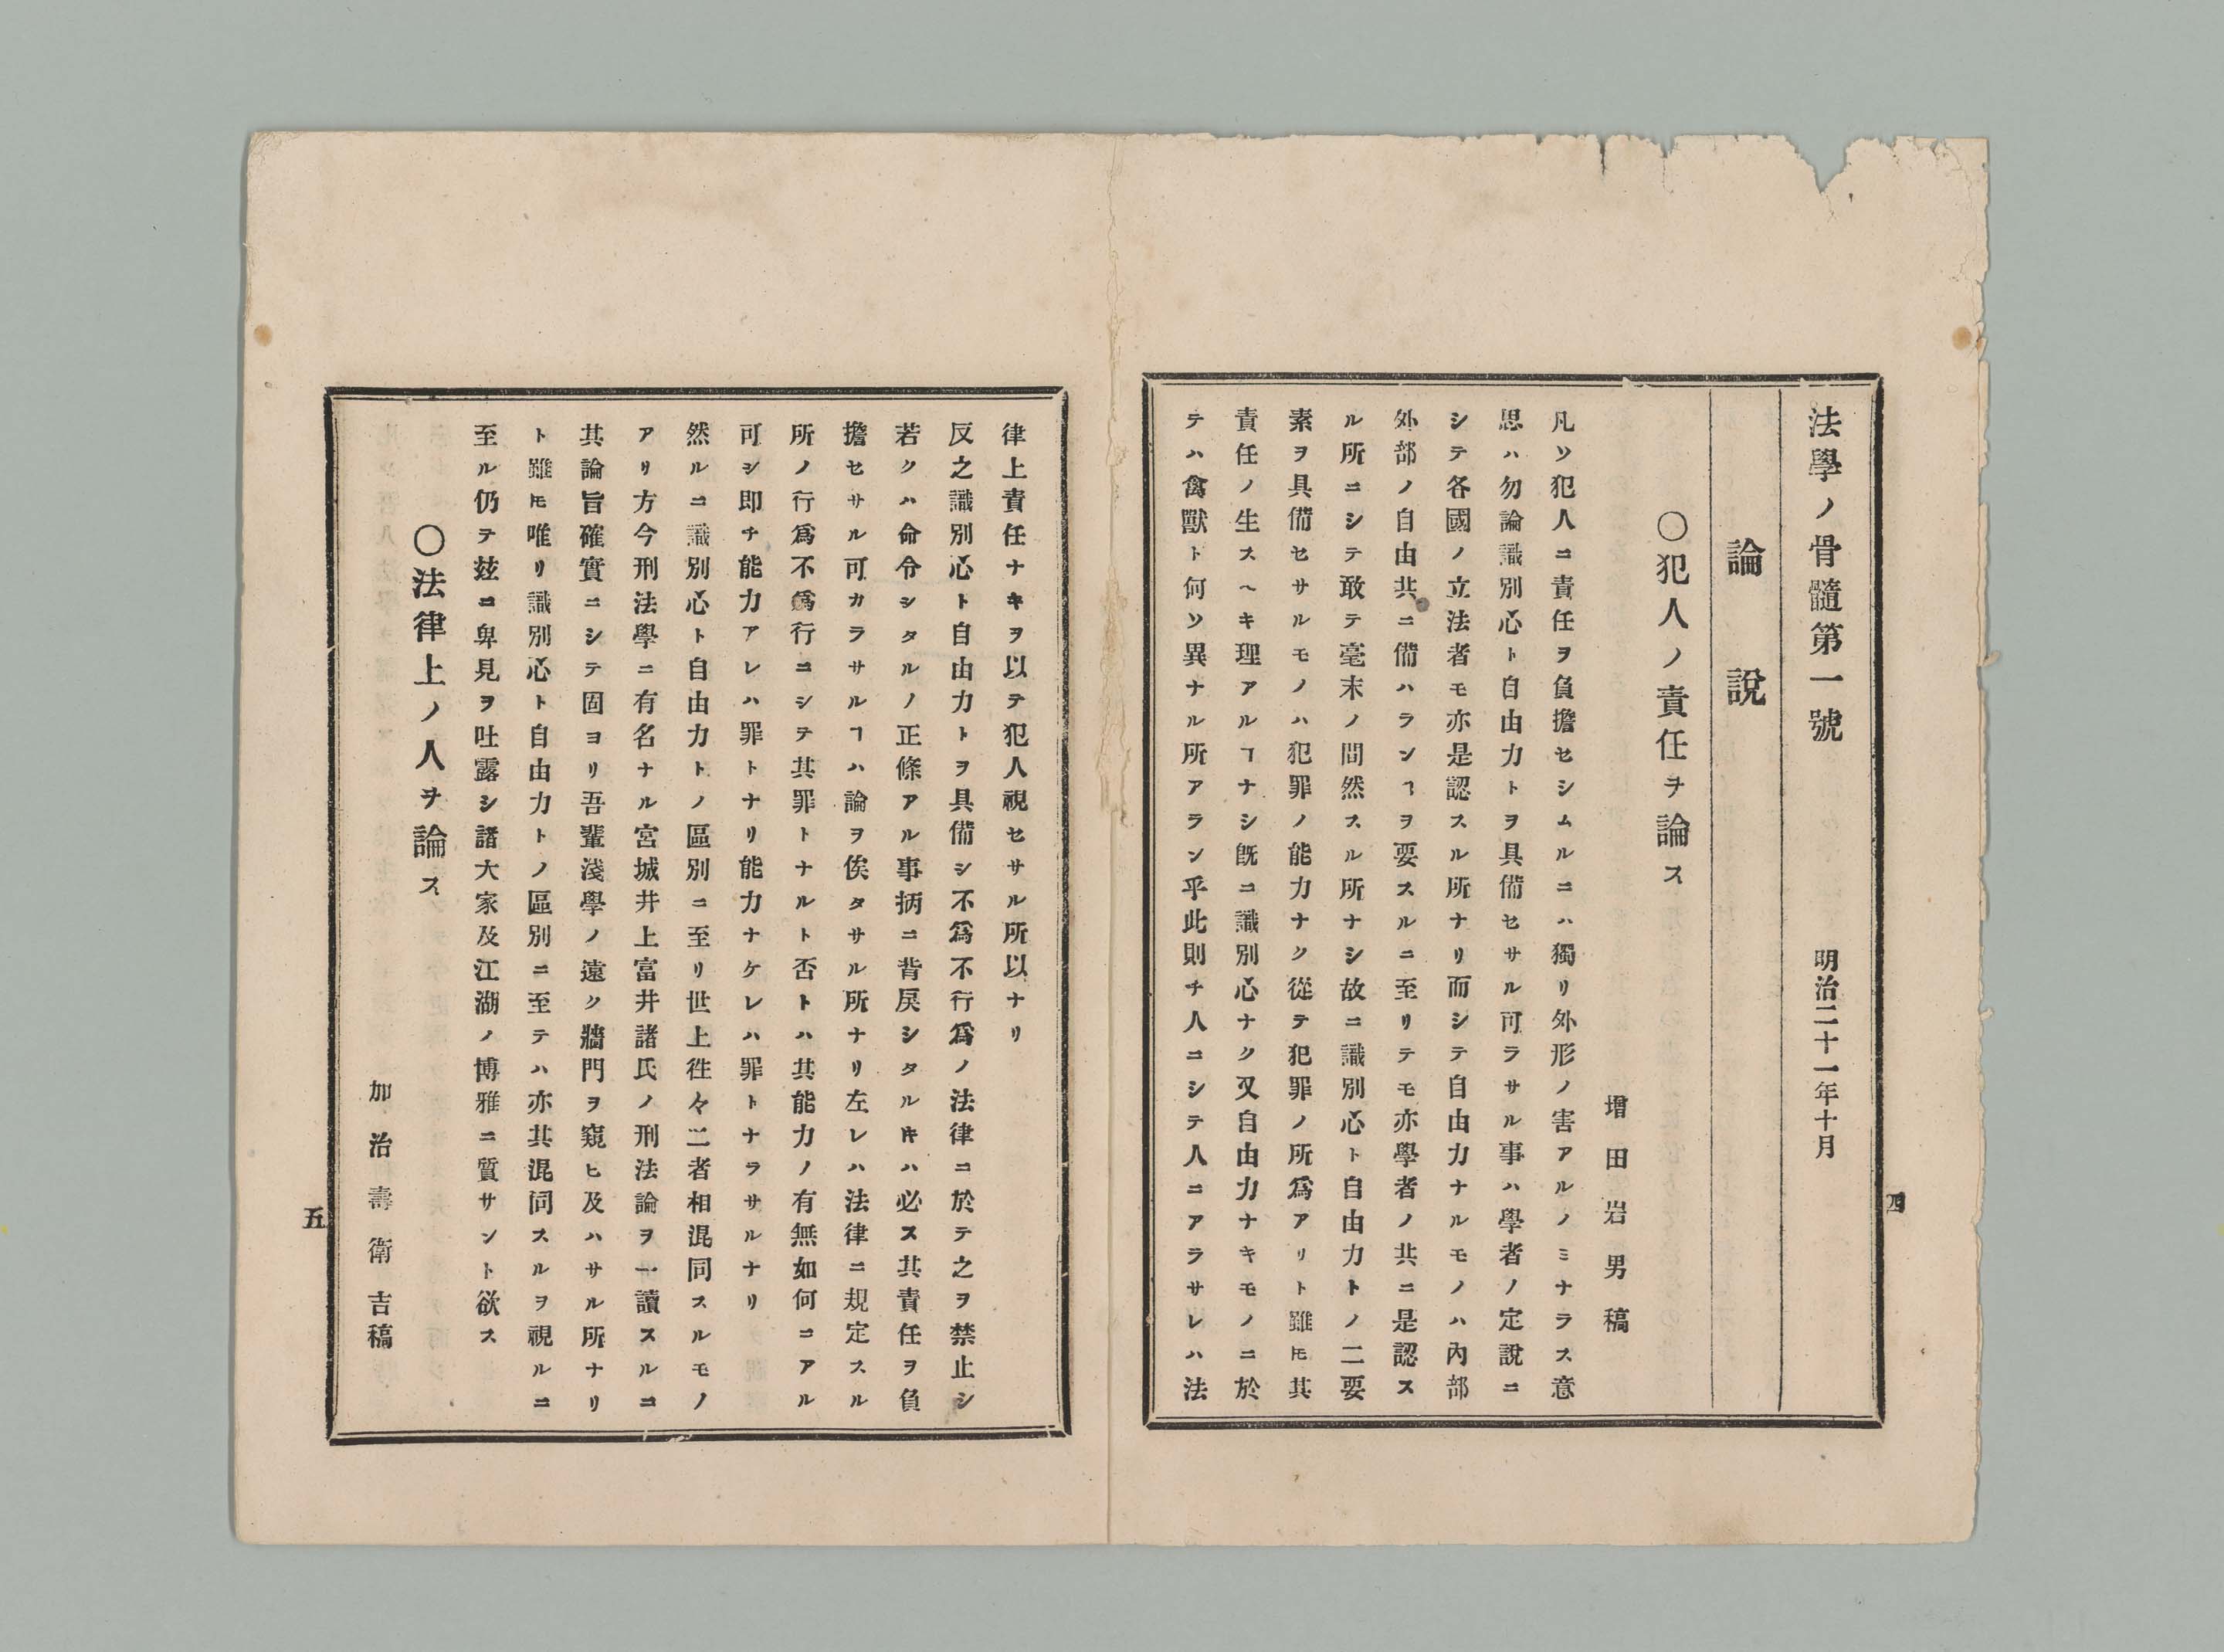 法學ノ骨髓第一號　明治二十一年十月
論說
〇犯人ノ責任ヲ論ス
增田岩男稿
凡ソ犯人ニ責任ヲ負擔セシムルニハ獨リ外形ノ害アルノミナラス意
思ハ勿論識別心ト自由力トヲ具備セサル可ラサル事ハ學者ノ定說ニ
シテ各國ノ立法者モ亦是認スル所ナリ而シテ自由力ナルモノハ內部
外部ノ自由共ニ備ハランヿヲ要スルニ至リテモ亦學者ノ共ニ是認ス
ル所ニシテ敢テ毫末ノ間然スル所ナシ故ニ識別心ト自由力トノ二要
素ヲ具備セサルモノハ犯罪ノ能力ナク從テ犯罪ノ所爲アリト雖𪜈其
責任ノ生スヘキ理アルヿナシ旣ニ識別心ナク又自由力ナキモノニ於
テハ禽獸ト何ソ異ナル所アラン乎此則チ人ニシテ人ニアラサレハ法
四
律上責任ナキヲ以テ犯人視セサル所以ナリ
反之識別心ト自由力トヲ具備シ不爲不行爲ノ法律ニ於テ之ヲ禁止シ
若クハ命令シタルノ正條アル事柄ニ背戾シタル𪜈ハ必ス其責任ヲ負
擔セサル可カラサルヿハ論ヲ俟タサル所ナリ左レハ法律ニ規定スル
所ノ行爲不爲行ニシテ其罪トナルト否トハ其能力ノ有無如何ニアル
可シ即チ能力アレハ罪トナリ能力ナケレハ罪トナラサルナリ
然ルニ識別心ト自由力トノ區別ニ至リ世上徃々二者相混同スルモノ
アリ方今刑法學ニ有名ナル宮城井上富井諸氏ノ刑法論ヲ一讀スルニ
其論旨確實ニシテ固ヨリ吾輩淺學ノ遠ク牆門ヲ窺ヒ及ハサル所ナリ
ト雖𪜈唯リ識別心ト自由力トノ區別ニ至テハ亦其混同スルヲ視ルニ
至ル仍テ玆ニ卑見ヲ吐露シ諸大家及江湖ノ博雅ニ質サント欲ス
〇法律上ノ人ヲ論ス
加治壽衛吉稿
五